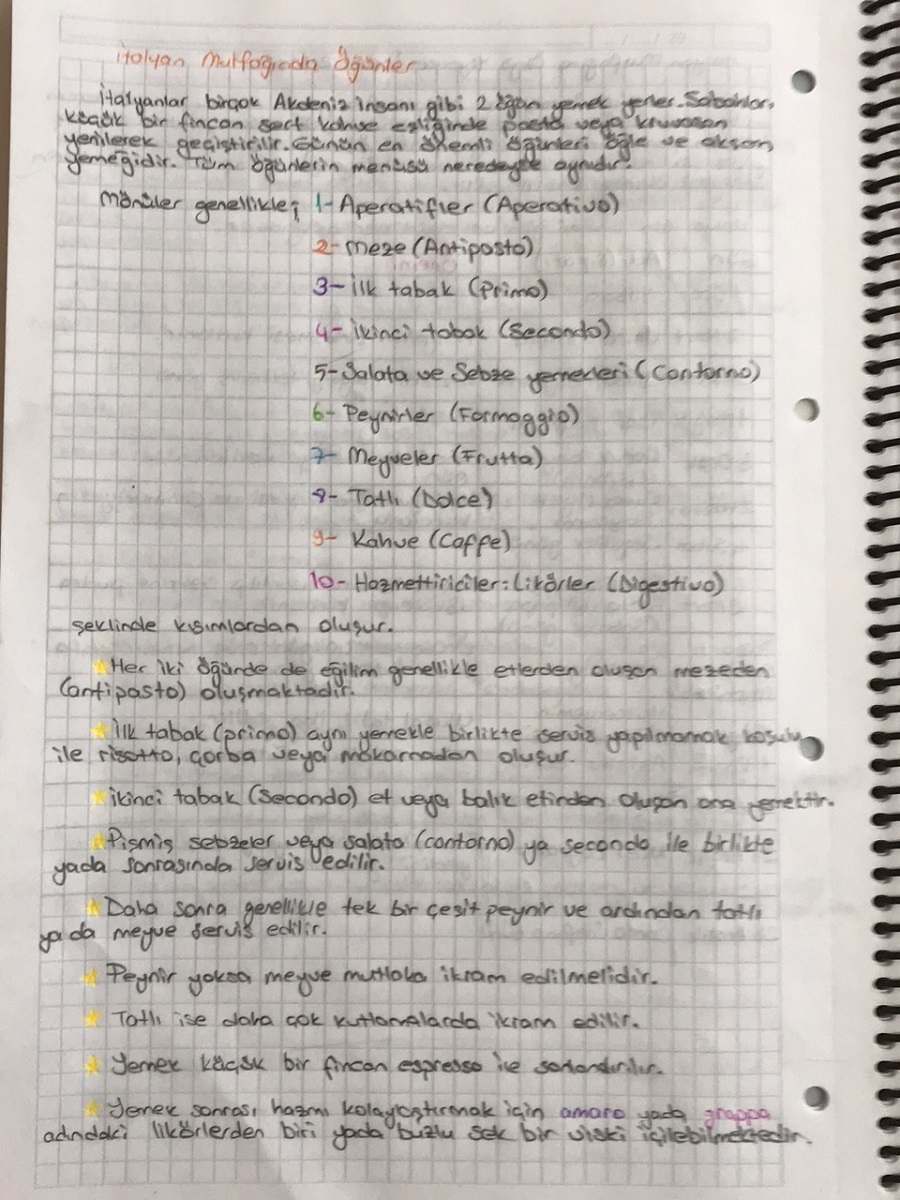 İtalyan Mutfağında Öğünler
İtalyanlar birçok Akdeniz insanı gibi 2 öğün yemek yerler. Sabahları,
küçük bir fincan sert kahve eşliğinde pasta veya kruvasan
yenilerek geçiştirilir. Günün en önemli öğünleri öğle ve akşam
yemeğidir. Tüm öğünlerin menüsü neredeyse aynıdır.
Mönüler genellikle; 1- Aperatifler (Aperativo)
2- Meze (Antiposto)
3- İlk tabak (Primo)
4- İkinci tabak (Secondo)
5- Salata ve Sebze yemekleri (Contorno)
6- Peynirler (Formoggio)
7- Meyveler (Frutta)
8- Tatlı (Dolce)
9- Kahve (Caffe)
10- Hazmettiriciler: Likörler (Digestivo)
şeklinde kısımlardan oluşur.
Her iki öğünde de eğilim genellikle etlerden oluşan mezeden
(antipasto) oluşmaktadır.
İlk tabak (primo) aynı yemekle birlikte servis yapılmamak koşulu
ile risotto, çorba veya makarnadan oluşur.
İkinci tabak (Secondo) et veya balık etinden oluşan ana yemektir.
Pişmiş sebzeler veya salata (contorno) ya secondo ile birlikte
yada sonrasında servis edilir.
Daha sonra genellikle tek bir çeşit peynir ve ardından tatlı
ya da meyve servis edilir.
Peynir yoksa meyve mutlaka ikram edilmelidir.
Tatlı ise daha çok kutlamalarda ikram edilir.
Yemek küçük bir fincan espresso ile sonlandırılır.
Yemek sonrası hazmı kolaylaştırmak için amaro yada grappa
adındaki likörlerden biri yada buzlu sek bir viski içilebilmektedir.